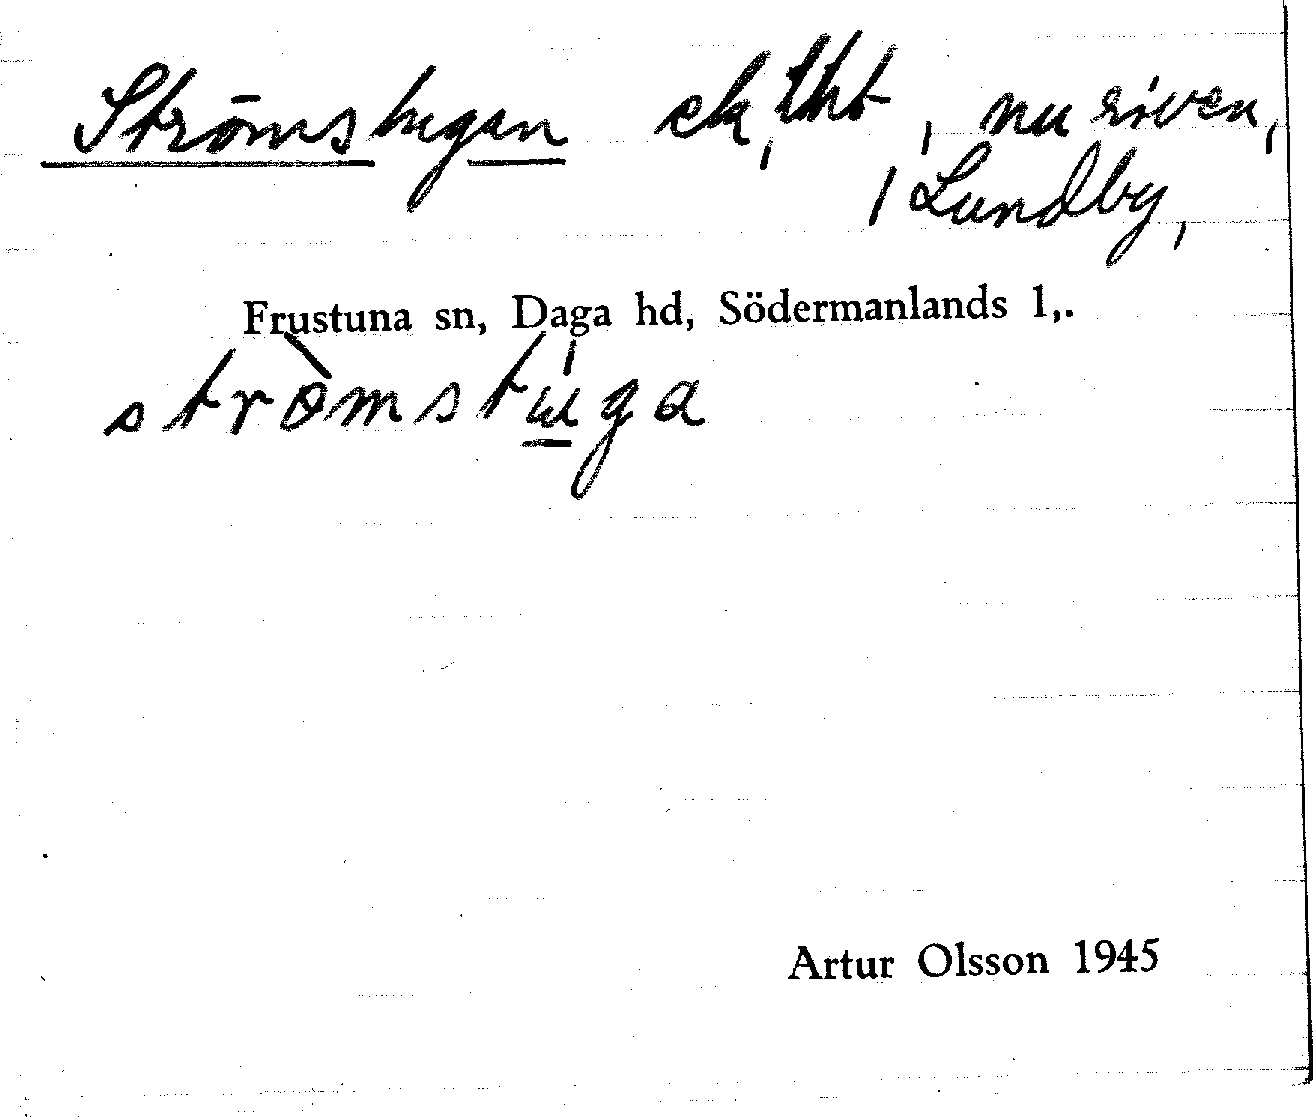 Strömstugan ek, tht, nu riven,
i Lundby,
Frustuna sn, Daga hd, Södermanlands l,.
stròmstu̲ga
Artur Olsson 1945